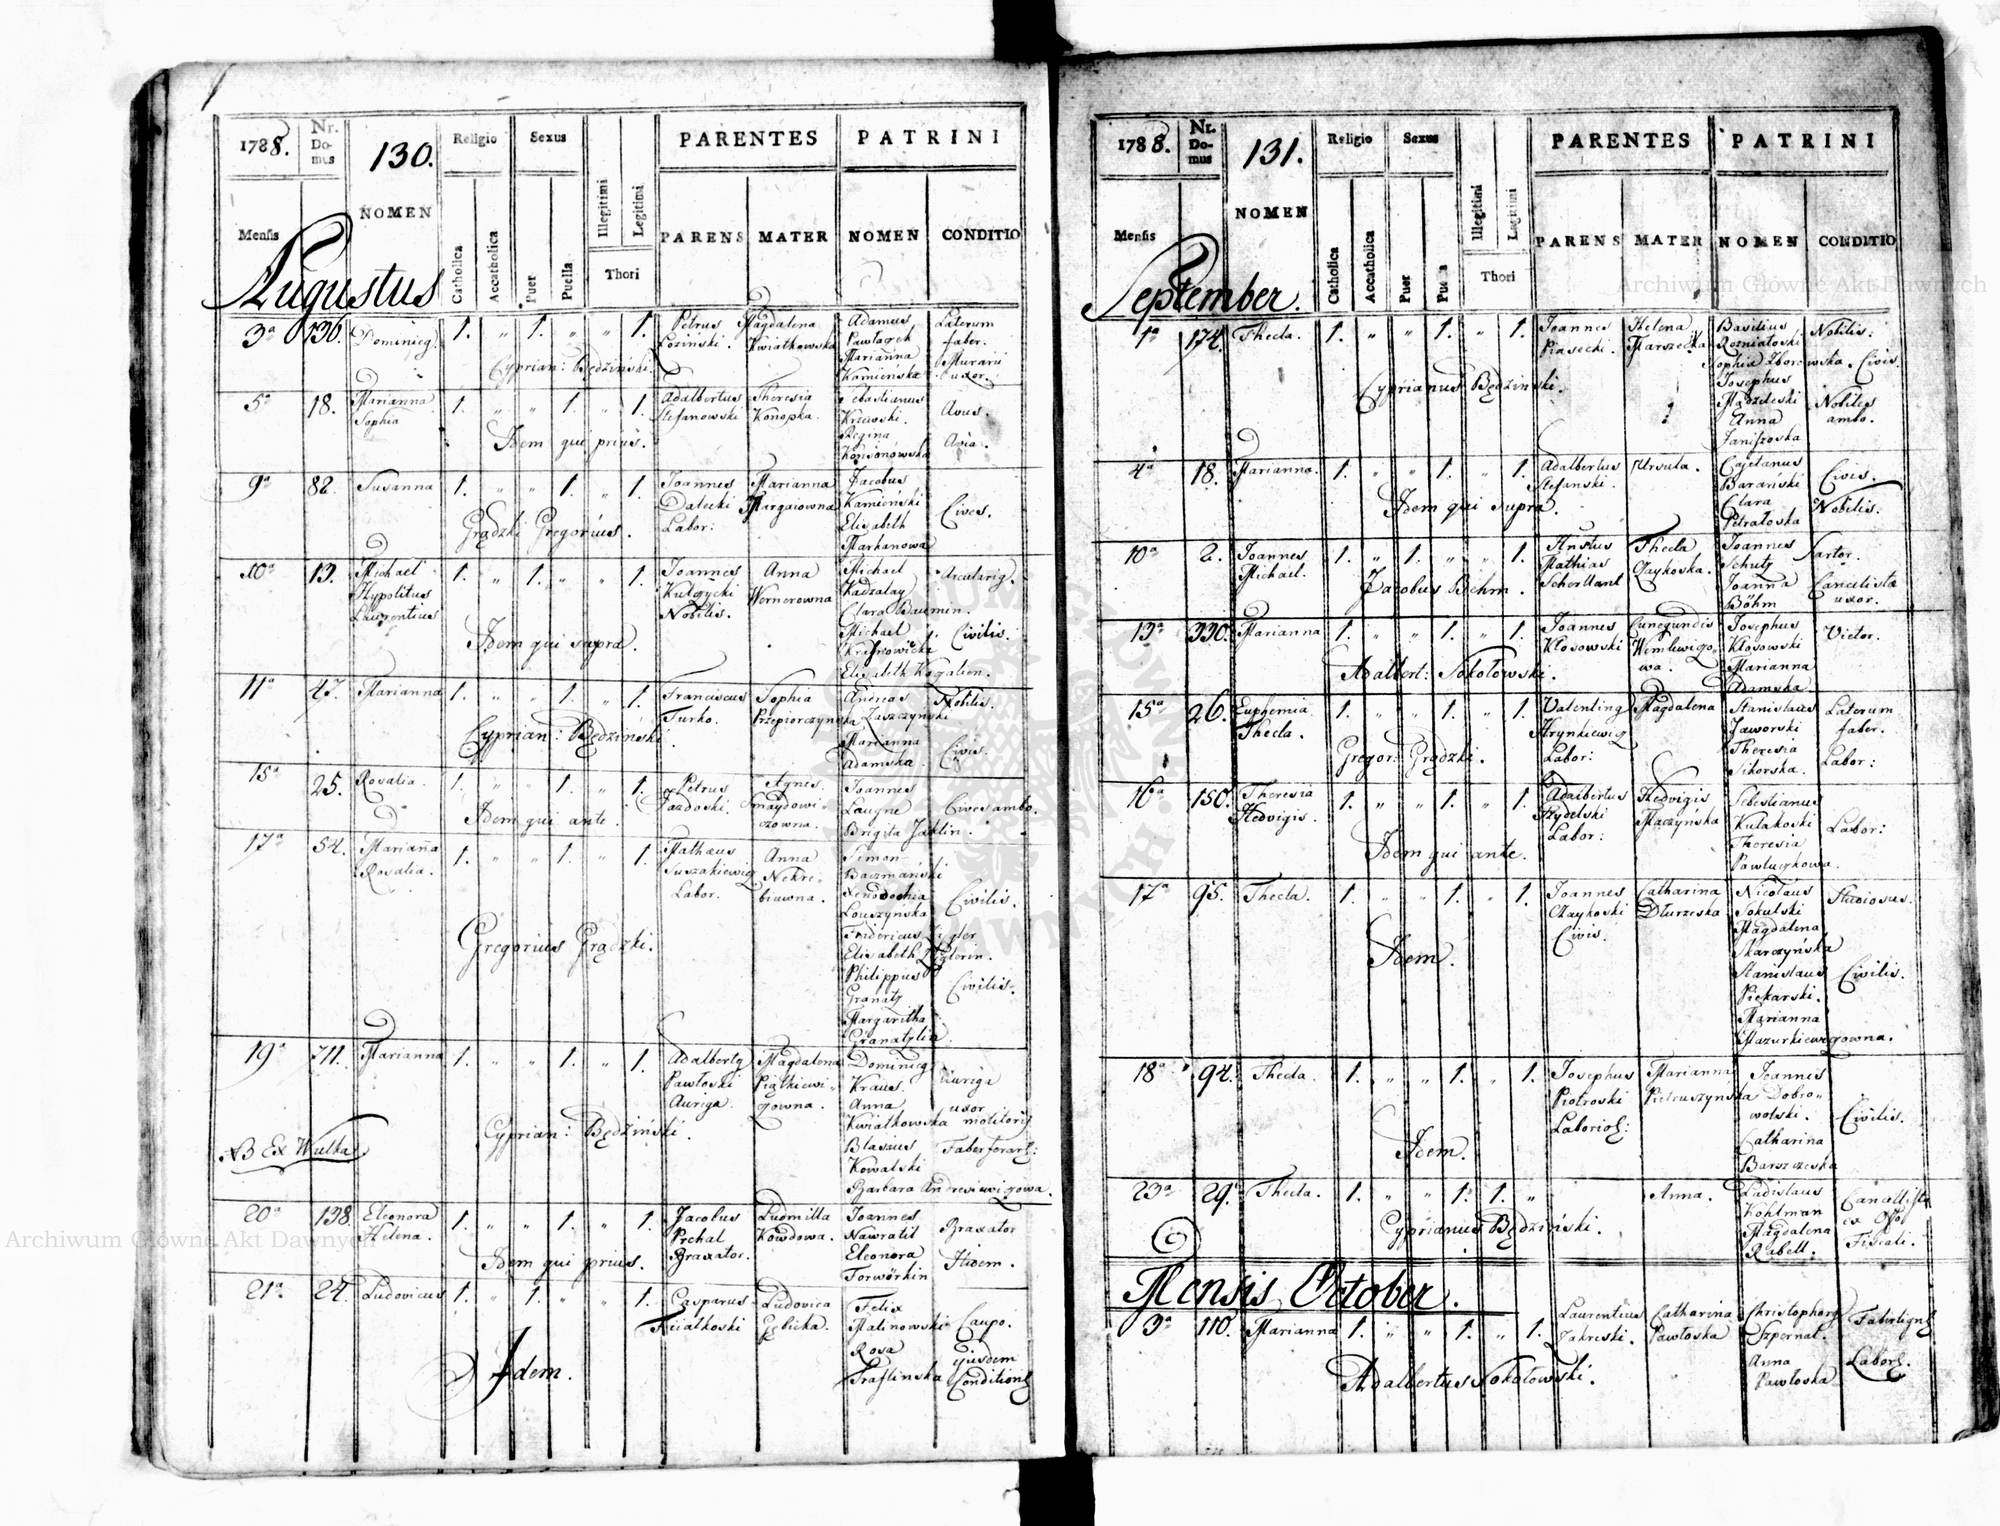 1788.
Nr. Domus
130.
Religio
Sexus
PARENTES
PATRINI
Mensis
NOMEN
Catholica
Accatholica
Puer
Puella
Illegitimi
Legitimi
Thori
PARENS
MATER
NOMEN
CONDITIO
Augustus
3a 136. Dominicg. 1. " 1. " " 1. Petrus Magdalena Adamus Laterum
Loziński. Kwiatkowska Pawlaczek faber.
Cyprian: Będziński. Marianna Murarii
Kamieńska uxor.
5a 18. Marianna 1. " " 1. " 1. Adalbertus Theresia Sebastianus
Sophia Stefanowski Konopka. Krzewski. Avus.
Idem qui prius. Regina Avia.
9a 82. Susanna 1. " " 1. " 1. Joannes Marianna Jacobus
Dalecki Kamieński Cives.
Grądzki Gregorius. Labor: Elisabeth
Markanowa
10a 13. Michael 1. " 1. " " 1. Joannes Anna Michael
Hypolitus Kulczycki Wernerowna Kadzalay
Laurentius Nobilis. Clara Baumin.
Idem qui supra. Michael Civilis.
Elisabeth Kagalien.
11a 47. Marianna 1. " " 1. " 1. Franciscus Sophia Andreas Nobilis.
Turko. Przepiorczynska Zaszczynski
Cyprian: Będziński. Marianna Civis.
Adamska
15a 25. Rosalia. 1. " " 1. " 1. Petrus Agnes. Joannes
Jazdoski. Smaydowi- Laugne Cives ambo.
Idem qui ante. czowna. Brigita Jaklin.
17a 54. Marianna 1. " " 1. " 1. Mathaeus Anna Simon
Rosalia. Suszakiewicz Nekre- Baczmański
Labor. biuwna. Civilis.
Louszynska
Gregorius Grądzki. Fridericus Zigler
Elisabeth Ziglerin.
Philippus Civilis.
Granatz
Margaritha
Granatzlin
19a 711. Marianna 1. " " 1. " 1. Adalbertg Magdalena Dominicg Auriga
Pawłoski Piątkiewi- Kraus.
Auriga. czowna. Anna uxor
Cyprian: Będziński. Kwiatkowska molitoris
NB Ex Wulka Blasius Faber ferari:
Kowalski
Barbara Andresiewiczowa.
20a 138. Eleonora 1. " " 1. " 1. Jacobus Ludmilla Joannes
Helena. Prchal Kowdowa. Nawratil Braxator
Idem qui prius. Braxator. Eleonora Itidem.
Torwörkin
21a 24. Ludovicus 1. " 1. " " 1. Casparus Ludovica Felix
Fiałkoski Gębicka. Malinowski Caupo.
Idem. Rosa Ejusdem
Traflinska Condition
1788.
Nr. Domus
131.
Religio
Sexus
PARENTES
PATRINI
Mensis
NOMEN
Catholica
Accatholica
Puer
Puella
Illegitimi
Legitimi
Thori
PARENS
MATER
NOMEN
CONDITIO
September.
1a 174. Thecla. 1. " " 1. " 1. Joannes Helena Basilius Nobilis.
Piasecki. Marszecka Rozniatoski
Sophia Zborowska. Civis.
Cyprianus Będzinski. Josephus
Mądzeleski Nobiles
Anna ambo.
Janiszoska
4a 18. Marianna. 1. " " 1. " 1. Adalbertus Ursula. Cajetanus Civis.
Stefanski. Barański
Idem qui supra. Clara Nobilis.
Petraloska
10a 2. Joannes 1. " 1. " " 1. Thecla Joannes Sartor.
Michael. Mathias Czaykoska. Schutz
Jacobus Behm. Joanna Cancelista
Böhm uxor.
13a 330. Marianna 1. " " 1. " 1. Joannes Cunegundis Josephus Victor.
Kłosowski Kłosowski
Adalbert: Sokołowski. wa. Marianna
Adamska
15a 26. Euphemia 1. " " 1. " 1. Valenting Magdalena Stanislaus Laterum
Thecla. Hrynkiewicz Jaworski faber.
Gregor: Grądzki. Labor: Theresia Labor:
Sikorska.
16a 150. Theresia 1. " " 1. " 1. Adalbertus Hedvigis Sebestianus
Hedvigis. Rydelski Maczyńska Kulakoski Labor:
Idem qui ante. Labor: Theresia
Pawluczkowa.
17a 95. Thecla. 1. " " 1. " 1. Joannes Catharina Nicolaus Studiosus.
Czaykoski Dłurzeska Sokulski
Civis. Magdalena
Idem. Skarczyńska
Stanislaus Civilis.
Piekarski.
Marianna
Mazurkiewiczowna.
18a 94. Thecla. 1. " " 1. " 1. Josephus Marianna Joannes
Piotroski Pietruszyńska Dobro-
Laborios: wolski. Civilis.
Idem. Catharina
Barszczeska
23a 29. Thecla. 1. " " 1. 1. " Anna. Ladislaus Cancellista
Kohlman ex Offo
Cyprianus Będziński. Magdalena Fiscali.
Rabell.
Mensis October.
3a 110. Marianna 1. " " 1. " 1. Laurentius Catharina Christophorg Faber lign
Zakreski. Pawłoska Szpernal.
Adalbertus Sokołowski. Anna Labor.
Pawłoska
Archiwum Główne Akt Dawnych
Archiwum Główne Akt Dawnych